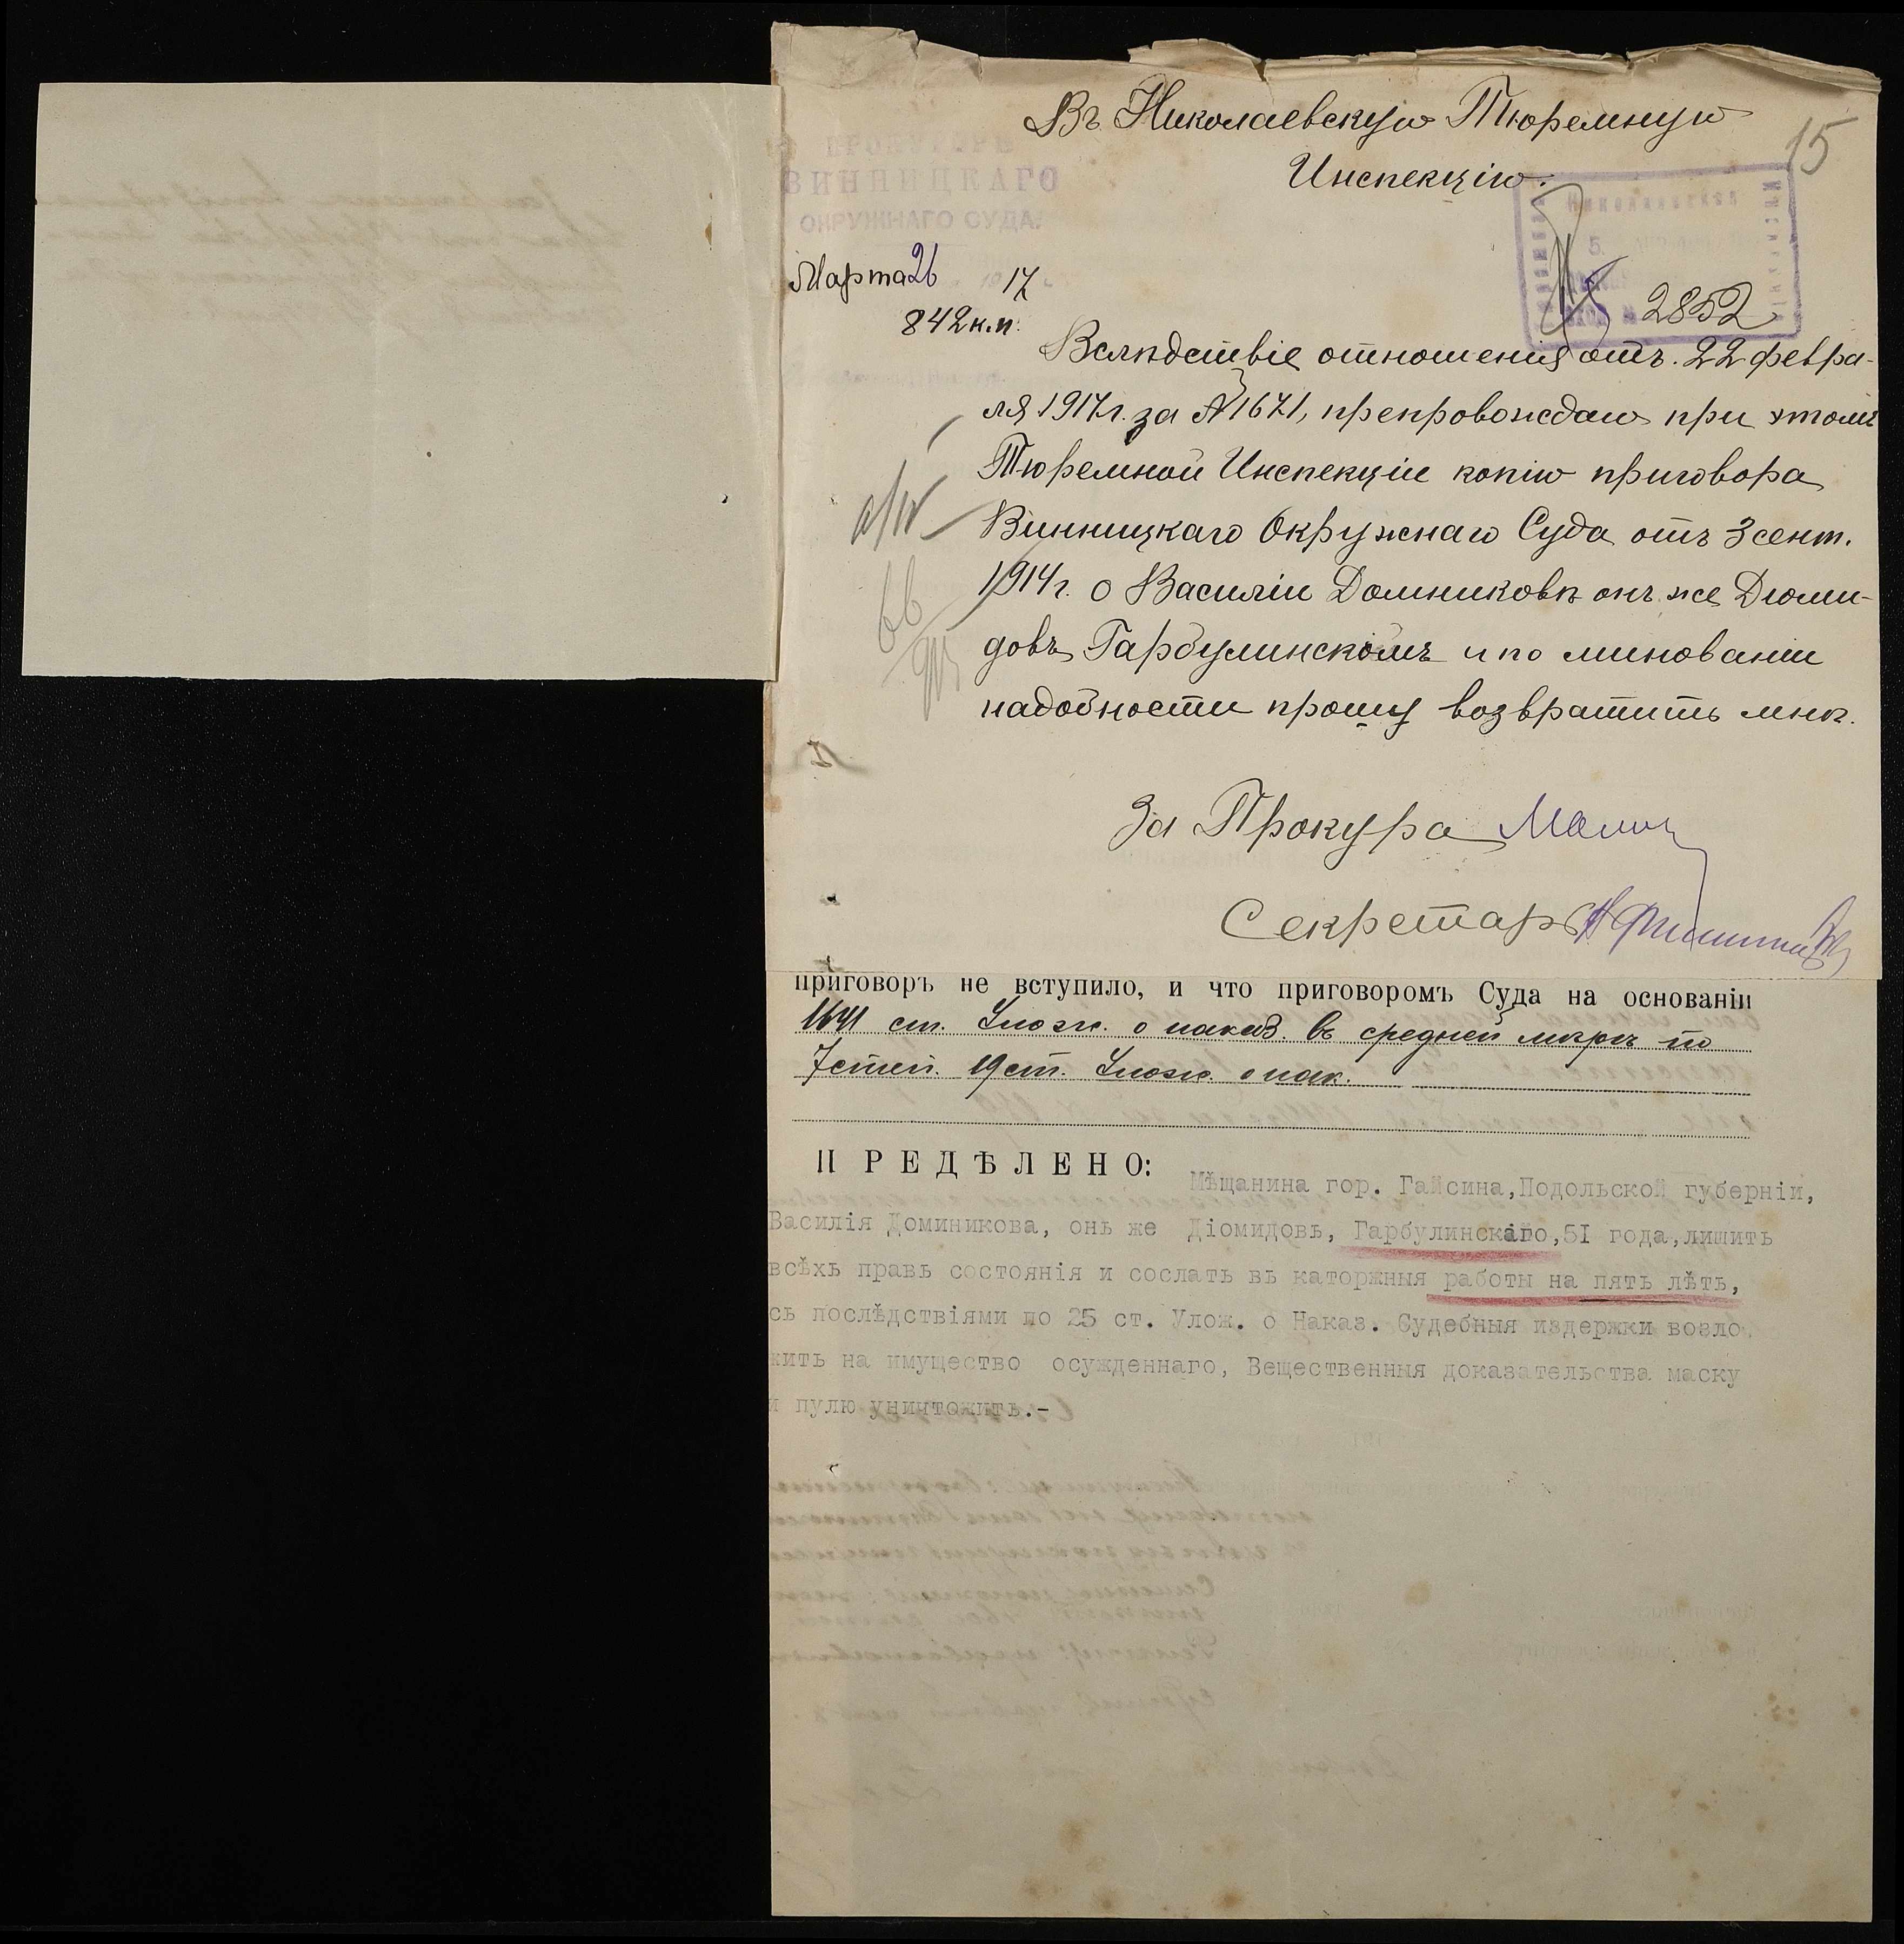 Въ Николаевскую Тюремную
Инспекцію.
15
ПРОКУРОРЪ
ВИННИЦКАГО
ОКРУЖНАГО СУДА.
Марта 26 1917
842 к.п.
Николаевская
5
2852
Вслѣдствіе отношенія отъ 22 февра-
ля 1917 г. за № 1671, препровождаю при этомъ
Тюремной Инспекціи копію приговора
Винницкаго Окружнаго Суда отъ 3 сент.
1914 г. о Василіи Домниковѣ онъ же Дюми-
довъ Гарбулинскомъ и по минованіи
надобности прошу возвратить мнѣ.
За Прокура
Секретарь
приговоръ не вступило, и что приговоромъ Суда на основаніи
1641 ст. Улож. о наказ. въ средней мѣрѣ по
7 степ. 19 ст. Улож. о нак.
ПРЕДѢЛЕНО:
Мѣщанина гор. Гайсина, Подольской губерніи,
Василія Доминикова, онъ же Діомидовъ, Гарбулинскаго, 51 года, лишить
всѣхъ правъ состоянія и сослать въ каторжныя работы на пять лѣтъ,
съ послѣдствіями по 25 ст. Улож. о Наказ. Судебныя издержки возло
жить на имущество осужденнаго, Вещественныя доказательства маску
и пулю уничтожить.-